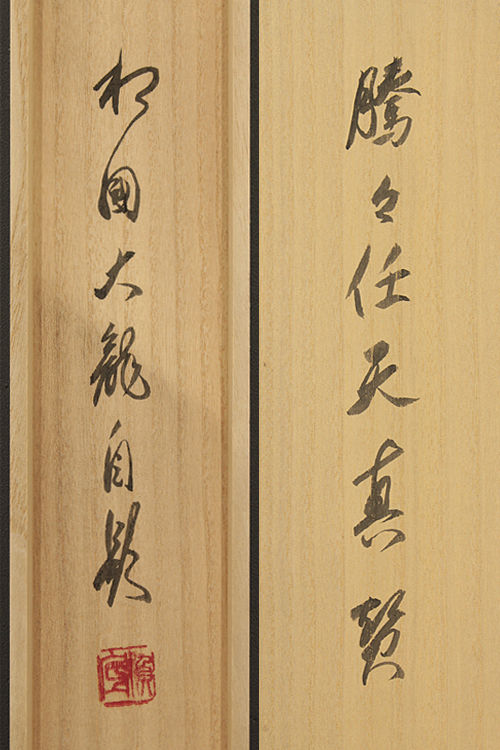 騰々任天真賛
相国大龍自題